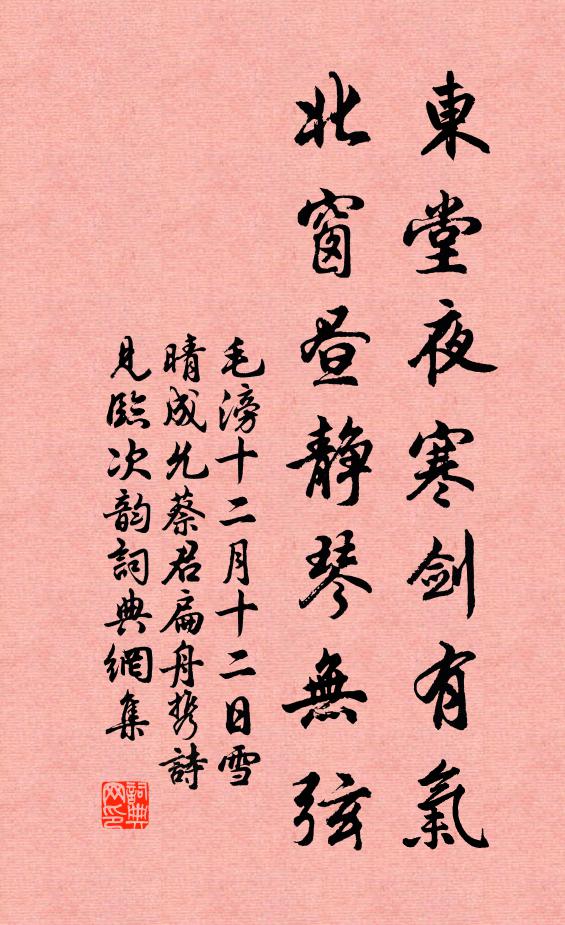 東堂夜寒剑有氣
北窗昼静琴無弦
毛滂十二月十二日雪
晴成允蔡君扁舟携詩
見臨次韵詞典網集
詞典网印